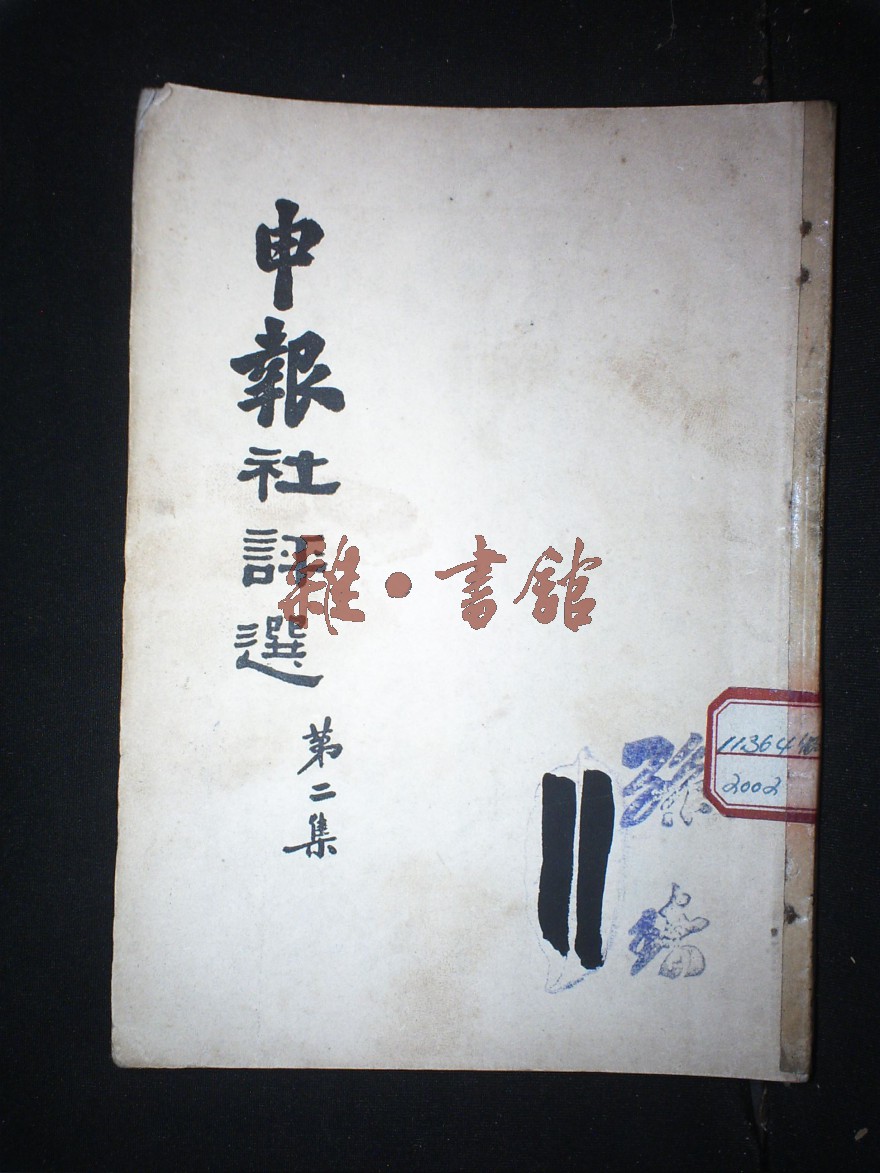 申報社評選
第二集
雜·書館
2002